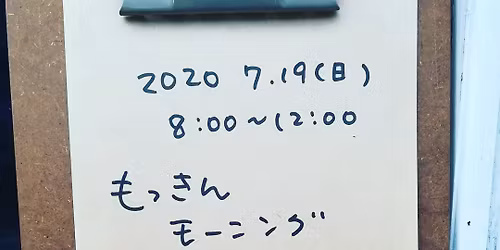 2020 7.19(日)
8:00~12:00
もっきん
モーニング